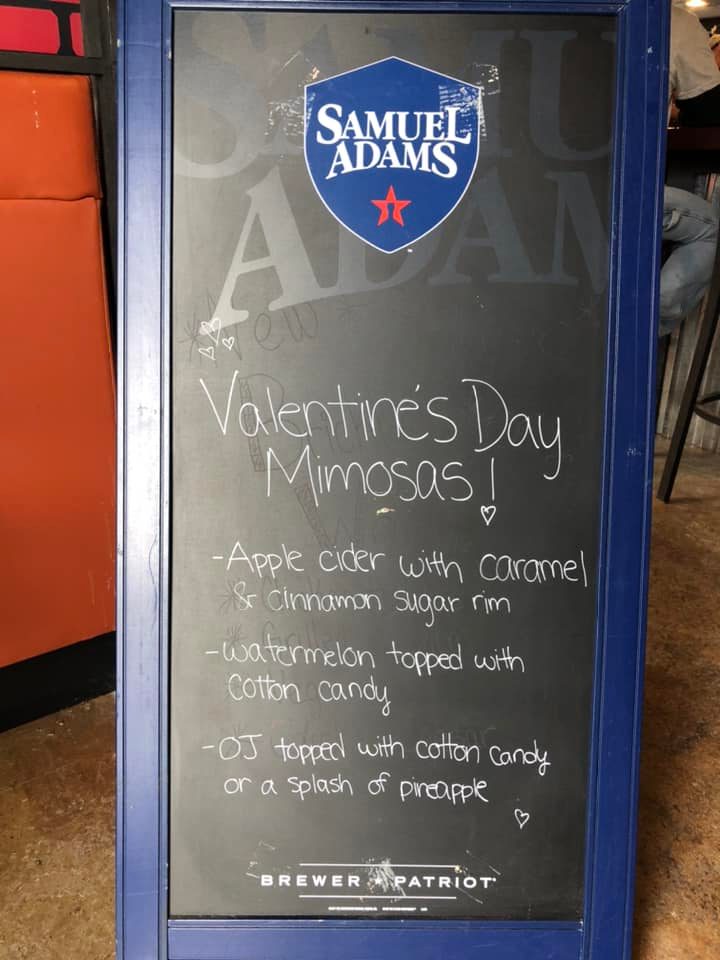 SAMUEL
ADAMS
SAMU
ADAM
New
Valentine's Day
Mimosas!
-Apple cider with caramel
& cinnamon sugar rim
-watermelon topped with
cotton candy
-OJ topped with cotton candy
or a splash of pineapple
BREWER ★ PATRIOT